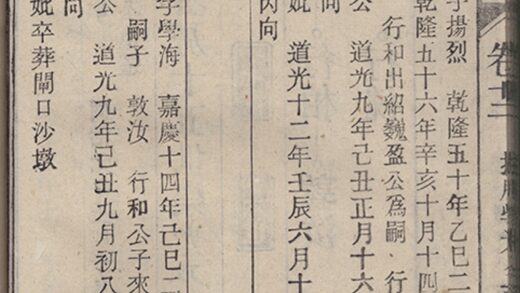 卷十三
字揚烈 乾隆五十年乙巳二
乾隆五十六年辛亥十月十四
行和出紹巍盈公爲嗣 行
公 道光九年己丑正月十六
妣 道光十二年壬辰六月十
丙向
字學海 嘉慶十四年己巳二
嗣子 敦汝 行和公子來
公 道光九年己丑九月初八
向
妣卒葬閘口沙墩